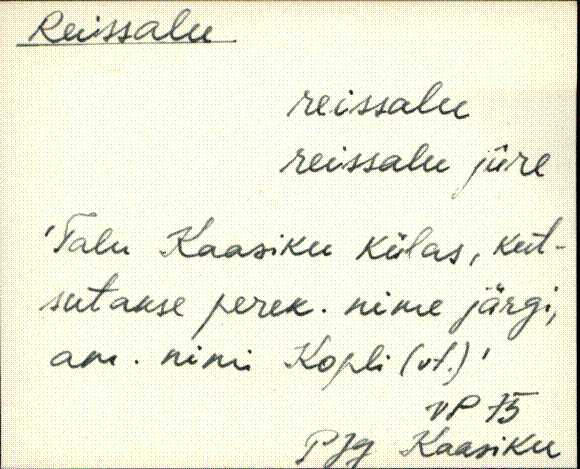 Reissalu
reissalu
reissalu jüre
'Talu Kaasiku külas, kut-
sutakse perek. nime järgi,
am. nimi Kopli (vt.)'
VP 75
PJg Kaasiku